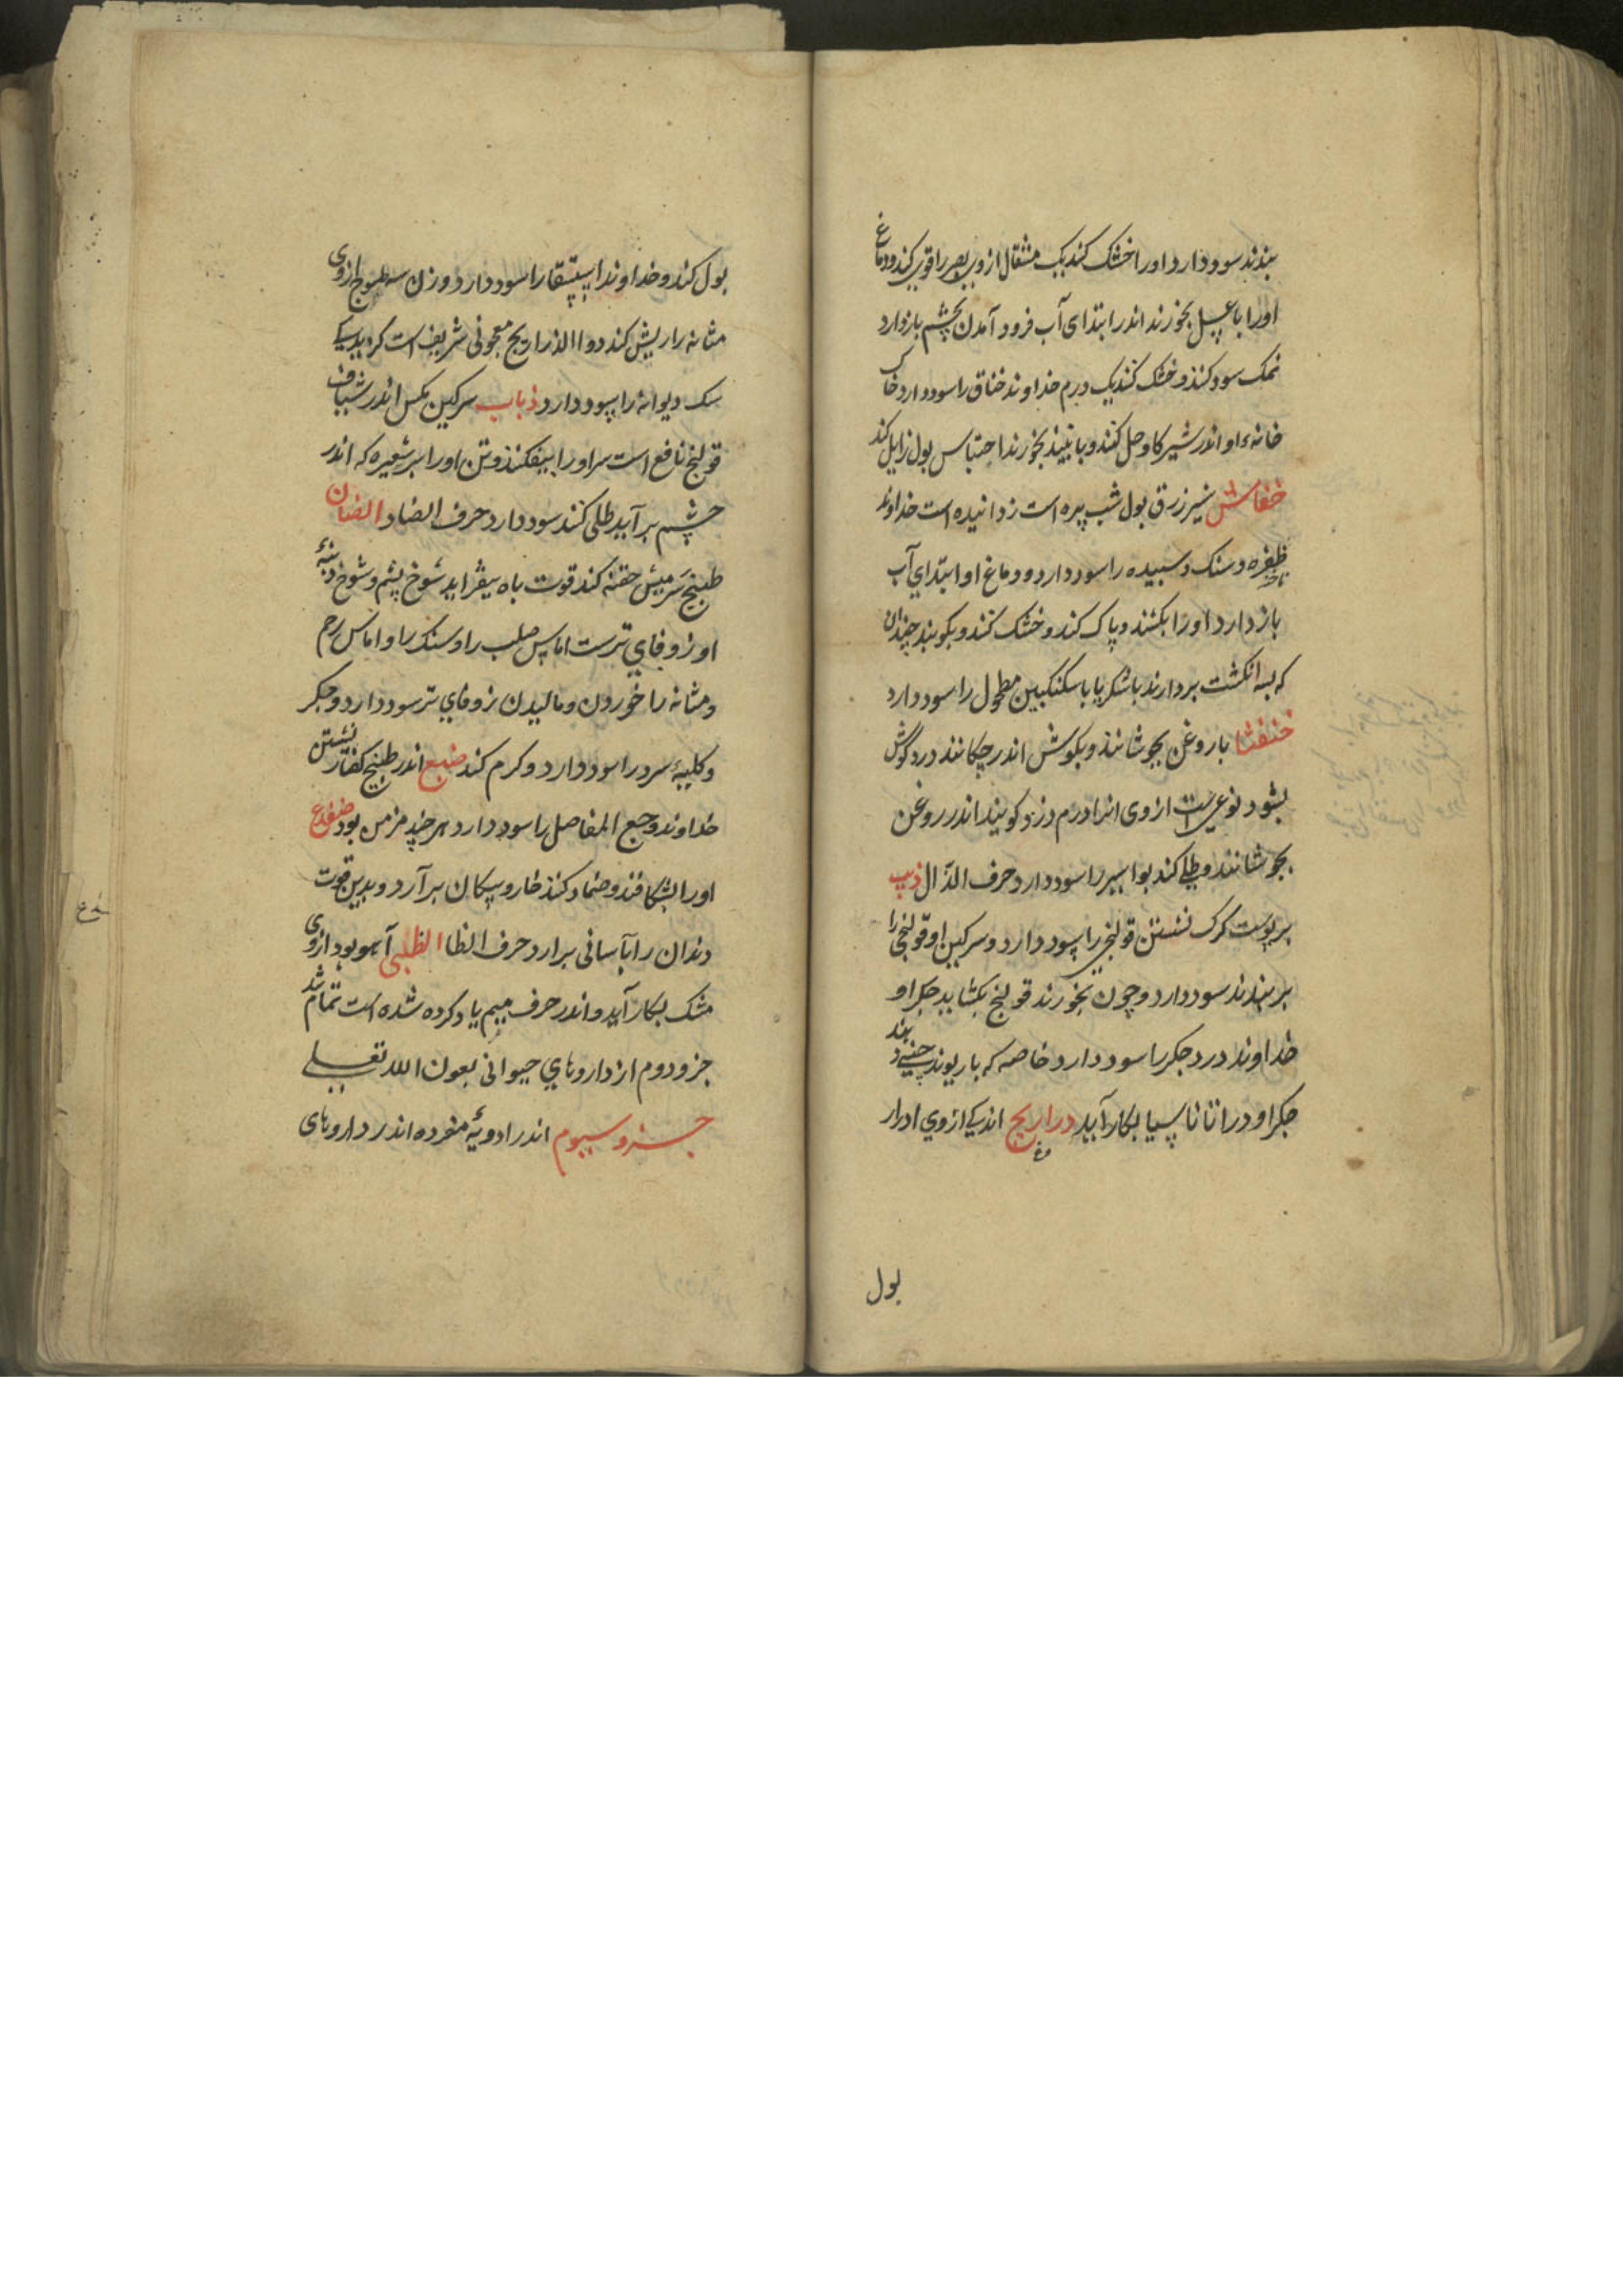 بندند سود دارد اورا خشک کنند یک مثقال ازوی بصر را قوی کند و دماغ
اورا با عسل بخورند اندر ابتدای آب فرود آمدن بچشم باز دارد
نمک سود کنند و خشک کنند یک درم خداوند خناق را سود دارد خاک
خانهٔ او اندر شیر کاو حل کنند و بانبیذ بخورند احتباس بول زایل کند
خفاش شیرزق بول شب پره است زدانیده است خداوند
ظفره و سنک و سبیده را سود دارد و دماغ او ابتدای آب
ناخنه
باز دارد اورا بکشند و پاک کنند و خشک کنند و بکوبند چندان
که بسه انکشت بردارند با شکر یا با سکنکبین مطحول را سود دارد
خنفسا با روغن بجوشانند و بکوش اندر چکانند درد گوش
بشود نوعی است ازوی انرا درم دزد کویند اندر روغن
بجوشانند و طلی کند بواسیر را سود دارد حرف الذال ذیب
بر پوست کرک نشستن قولنج را سود دارد و سرکین او قولنجی را
بر بندند سود دارد و چون بخورند قولنج بکشاید جکر او
خداوند درد جکر را سود دارد خاصه که با ریوند چینی دهند
جکر او در اثاناسیا بکار آید دراریح اندکی ازوی ادرار
بول
بول کند و خداوند استسقا را سود دارد وزن سه طسوج ازوی
مثانه را ریش کند دوا الذراریح معجونی شریف است گزیدگی
سک دیوانه را سود دارد ذباب سرکین مکس اندر شیاف
قولنج نافع است سر اورا بیفکنند و تن اورا بر شعیره که اندر
چشم بر آید طلی کنند سود دارد حرف الضاد الضان
طبیخ سر میش حقنه کند قوت باه بیفزاید شوخ پشم و شوخ دنبهٔ
او زوفای ترست اماس صلب را و سنک را و اماس رحم
و مثانه را خوردن و مالیدن زوفای تر سود دارد و جکر
و کلیهٔ سرد را سود دارد و کرم کند ضبع اندر طبیخ کفتار نشستن
خداوند وجع المفاصل را سود دارد هر چند مزمن بود ضفدع
اورا بشکافند و ضماد کنند خار و پیکان بر آرد و بدین قوت
دندان را بآسانی برارد حرف الظا الظبی آهو بود ازوی
مشک بکار آید و اندر حرف میم یاد کرده شده است تمام شد
جزو دوم از داروهای حیوانی بعون الله تعلی
جزو سیوم اندر ادویهٔ مفرده اندر داروهای